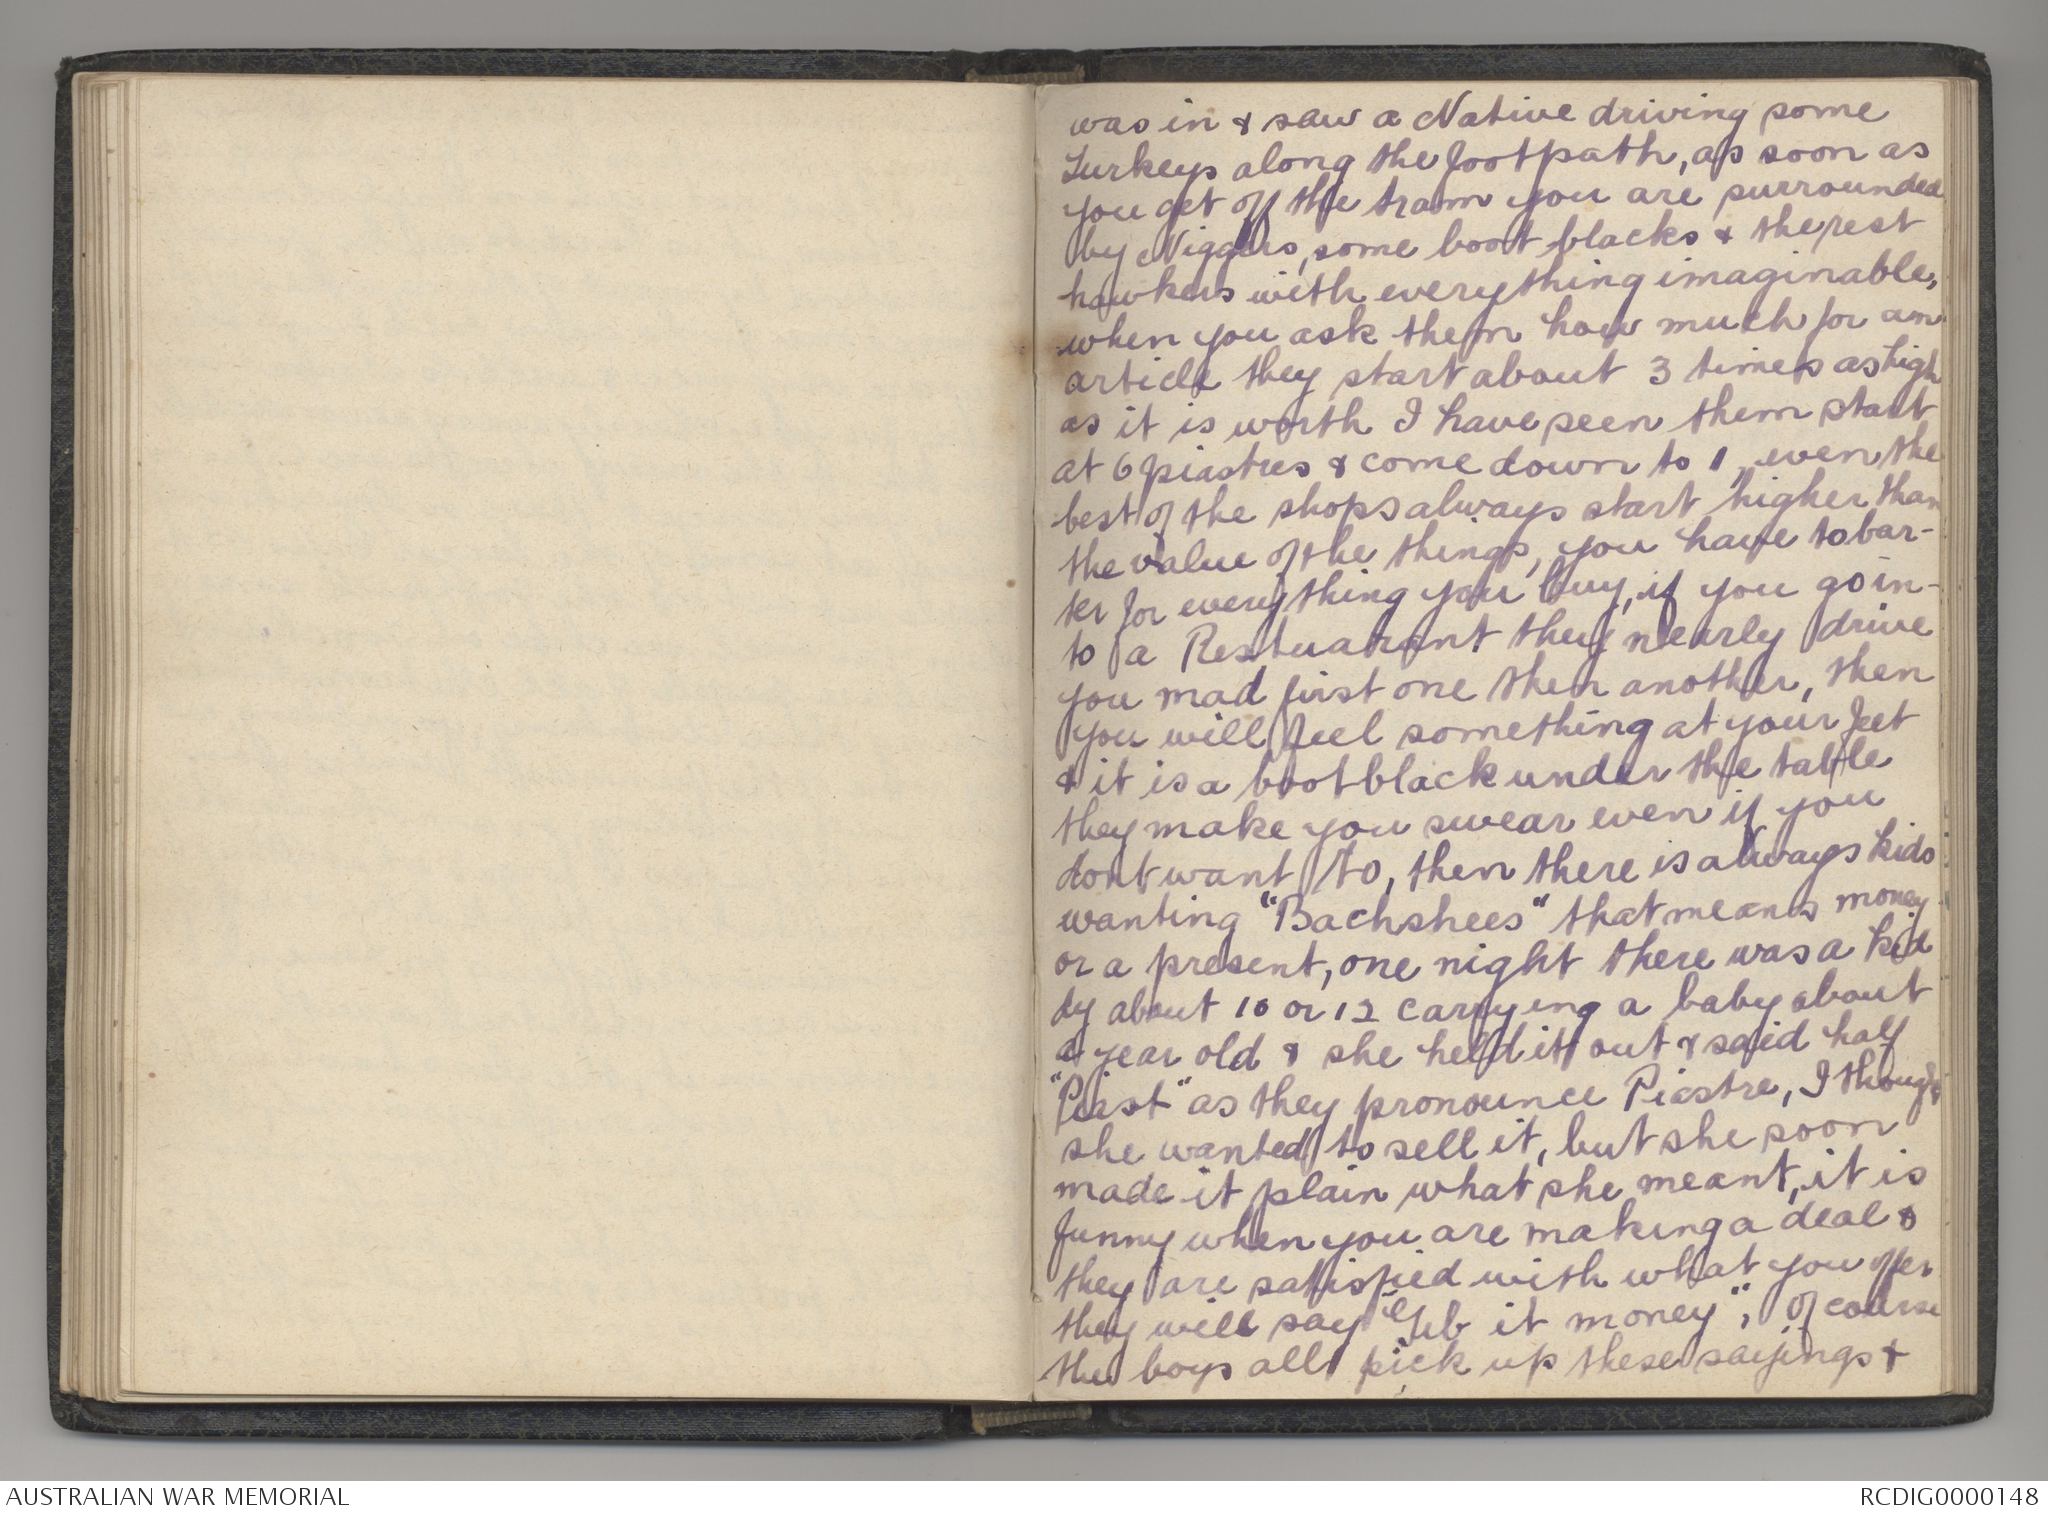 was in & saw a Native driving some
Turkeys along the footpath, as soon as
you get off the tram you are surrounded
by Niggers, some boot blacks & the rest
hawkers with everything imaginable,
when you ask them how much for an
article they start about 3 times as high
as it is worth I have seen them start
at 6 piastres & come down to 1, even the
best of the shops always start higher than
the value of the things, you have to bar-
ter for everything you buy, if you go in-
to a Restuarant they nearly drive
you mad first one then another, then
you will feel something at your feet
& it is a boot black under the table
they make you swear even if you
dont want to, then there is always kids
wanting "Bachshees" that means money
or a present, one night there was a kid
dy about 10 or 12 carrying a baby about
a year old & she held it out & said half
"Piast" as they pronounce Piastre, I thought
she wanted to sell it, but she soon
made it plain what she meant, it is
funny when you are making a deal &
they are satisfied with what you offer
they will say "Gib it money", of course
the boys all pick up these sayings &
AUSTRALIAN WAR MEMORIAL
RCDIG0000148